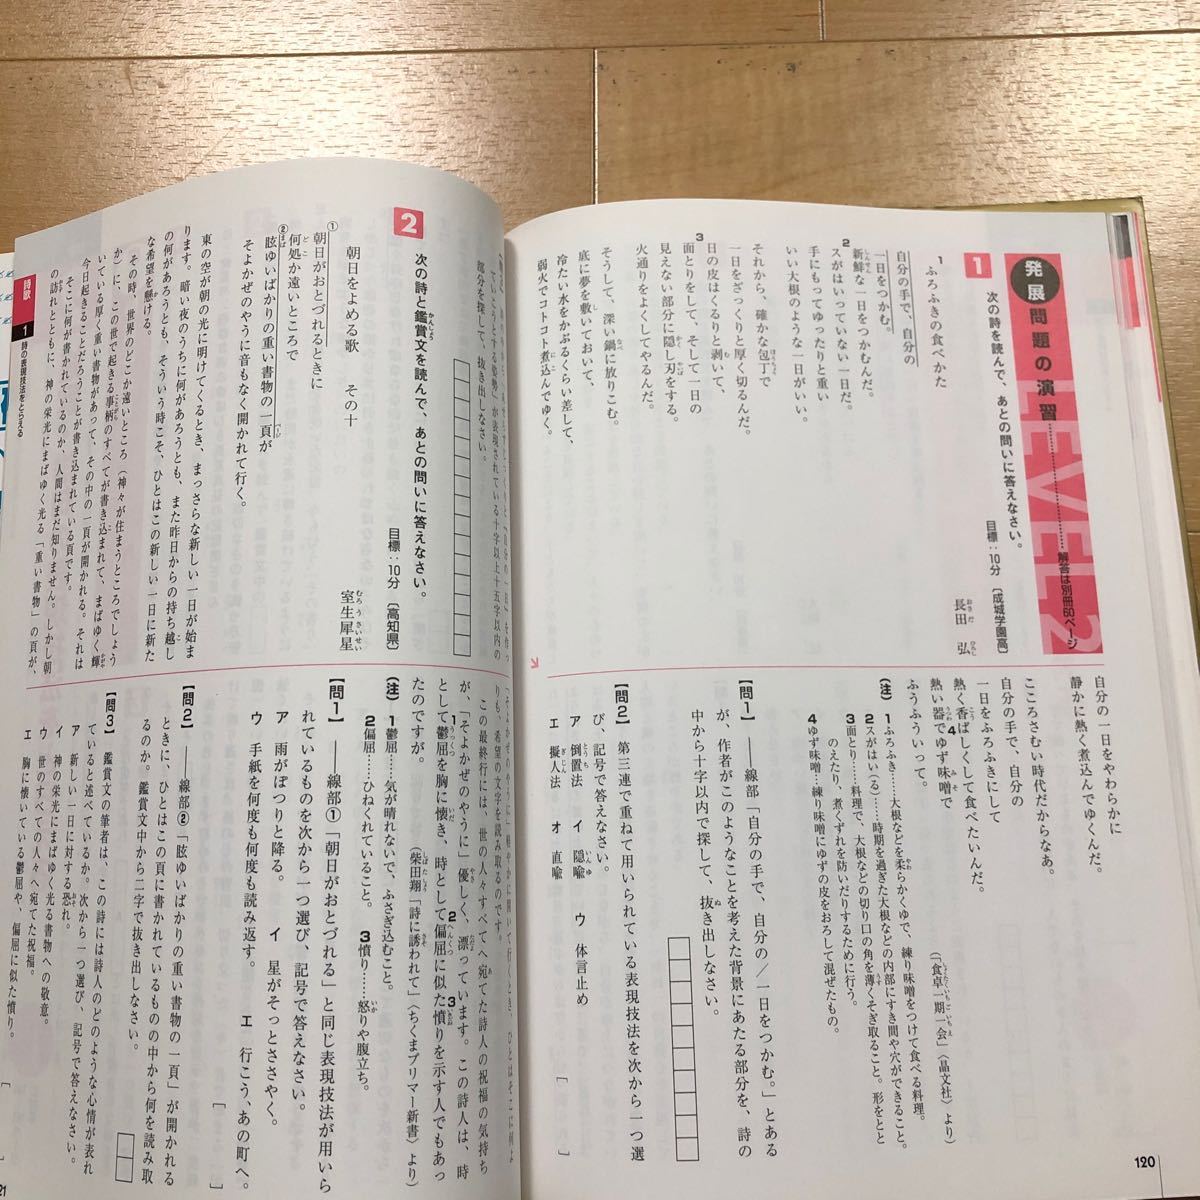 発展問題の演習
LEVEL 2
解答は別冊60ページ
1 次の詩を読んで、あとの問いに答えなさい。
目標：10分〔成城学園高〕
1 ふろふきの食べかた
長田 弘
自分の手で、自分の
一日をつかむ。
新鮮な一日をつかむんだ。
2 スがはいっていない一日だ。
手にもってゆったりと重い
いい大根のような一日がいい。
それから、確かな包丁で
一日をざっくりと厚く切るんだ。
日の皮はくるりと剥いて、
3 面とりをして、そして一日の
見えない部分に隠し刃をする。
火通りをよくしてやるんだ。
そうして、深い鍋に放りこむ。
底に夢を敷いておいて、
冷たい水をかぶるくらい差して、
弱火でコトコト煮込んでゆく。
自分の一日をやわらかに
静かに熱く煮込んでゆくんだ。
こころさむい時代だからなあ。
自分の手で、自分の
一日をふろふきにして
熱く香ばしくして食べたいんだ。
熱い器でゆず味噌で
ふうふういって。
（「食卓一期一会」〈晶文社〉より）
（注）1 ふろふき…大根などを柔らかくゆで、練り味噌をつけて食べる料理。
2 スがはい（る）……時期を過ぎた大根などの内部にすき間や穴ができること。
3 面とり…料理で、大根などの切り口の角を薄くそぎ取ること。形をとと
のえたり、煮くずれを防いだりするために行う。
4 ゆず味噌…練り味噌にゆずの皮をおろして混ぜたもの。
【問1】――線部「自分の手で、自分の／一日をつかむ。」とある
が、作者がこのようなことを考えた背景にあたる部分を、詩の
中から十字以内で探して、抜き出しなさい。
【問2】第三連で重ねて用いられている表現技法を次から一つ選
び、記号で答えなさい。
ア 倒置法 イ 隠喩 ウ 体言止め
エ 擬人法 オ 直喩
120
ていこうとする姿勢」が表現されている十字以上十五字以内の
部分を探して、抜き出しなさい。
2 次の詩と鑑賞文を読んで、あとの問いに答えなさい。
目標：10分〔高知県〕
朝日をよめる歌 その十
室生犀星
①朝日がおとづれるときに
何処か遠いところで
②眩ゆいばかりの重い書物の一頁が
そよかぜのやうに音もなく開かれて行く。
東の空が朝の光に明けてくるとき、まっさらな新しい一日が始ま
ります。暗い夜のうちに何があろうとも、また昨日からの持ち越し
の何があろうとも、そういう時こそ、ひとはこの新しい一日に新た
な希望を懸ける。
その時、世界のどこか遠いところ（神々が住まうところでしょう
か）に、この世で起きる事柄のすべてが書き込まれて、まばゆく輝
いている厚く重い書物があって、その中の一頁が開かれる。それは
今日起きることだろうことが書き込まれている頁です。
そこに何が書かれているのか、人間はまだ知りません。しかし朝
の訪れとともに、神の栄光にまばゆく光る「重い書物」の頁が、
「そよかぜのやうに」軽やかに開いて行くとき、ひとはそこに何よ
りも、希望の文字を読み取るのです。
この最終行には、世の人々すべてへ宛てた詩人の祝福の気持ち
が、「そよかぜのやうに」優しく、漂っています。この詩人は、時
として鬱屈を胸に懐き、時として偏屈に似た憤りを示す人でもあっ
たのですが。
（柴田翔「詩に誘われて」〈ちくまプリマー新書〉より）
（注）1 鬱屈……気が晴れないで、ふさぎ込むこと。
2 偏屈……ひねくれていること。 3 憤り……怒りや腹立ち。
【問1】――線部①「朝日がおとづれる」と同じ表現技法が用いら
れているものを次から一つ選び、記号で答えなさい。
ア 雨がぽつりと降る。 イ 星がそっとささやく。
ウ 手紙を何度も何度も読み返す。 エ 行こう、あの町へ。
【問2】――線部②「眩ゆいばかりの重い書物の一頁」が開かれる
ときに、ひとはこの頁に書かれているものの中から何を読み取
るのか。鑑賞文中から二字で抜き出しなさい。
【問3】鑑賞文の筆者は、この詩には詩人のどのような心情が表れ
ていると述べているか。次から一つ選び、記号で答えなさい。
ア 新しい一日に対する恐れ。
イ 神の栄光にまばゆく光る書物への敬意。
ウ 世のすべての人々へ宛てた祝福。
エ 胸に懐いている鬱屈や、偏屈に似た憤り。
詩歌 1 詩の表現技法をとらえる
21